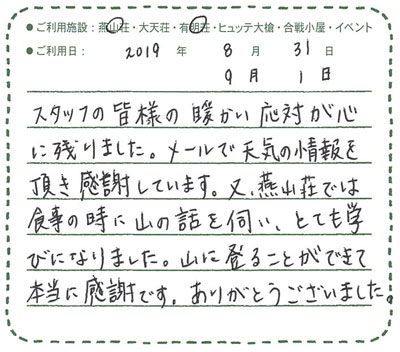 ●ご利用施設：燕山荘・大天荘・有明荘・ヒュッテ大槍・合戦小屋・イベント
●ご利用日： 2019 年 8 月 31 日
9 月 1 日
スタッフの皆様の暖かい応対が心
に残りました。メールで天気の情報を
頂き感謝しています。又、燕山荘では
食事の時に山の話を伺い、とても学
びになりました。山に登ることができて
本当に感謝です。ありがとうございました。